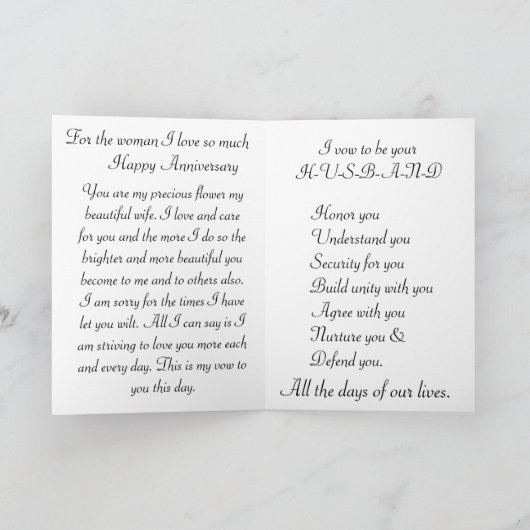 For the woman I love so much
Happy Anniversary
You are my precious flower my
beautiful wife. I love and care
for you and the more I do so the
brighter and more beautiful you
become to me and to others also.
I am sorry for the times I have
let you wilt. All I can say is I
am striving to love you more each
and every day. This is my vow to
you this day.
I vow to be your
H-U-S-B-A-N-D
Honor you
Understand you
Security for you
Build unity with you
Agree with you
Nurture you &
Defend you.
All the days of our lives.